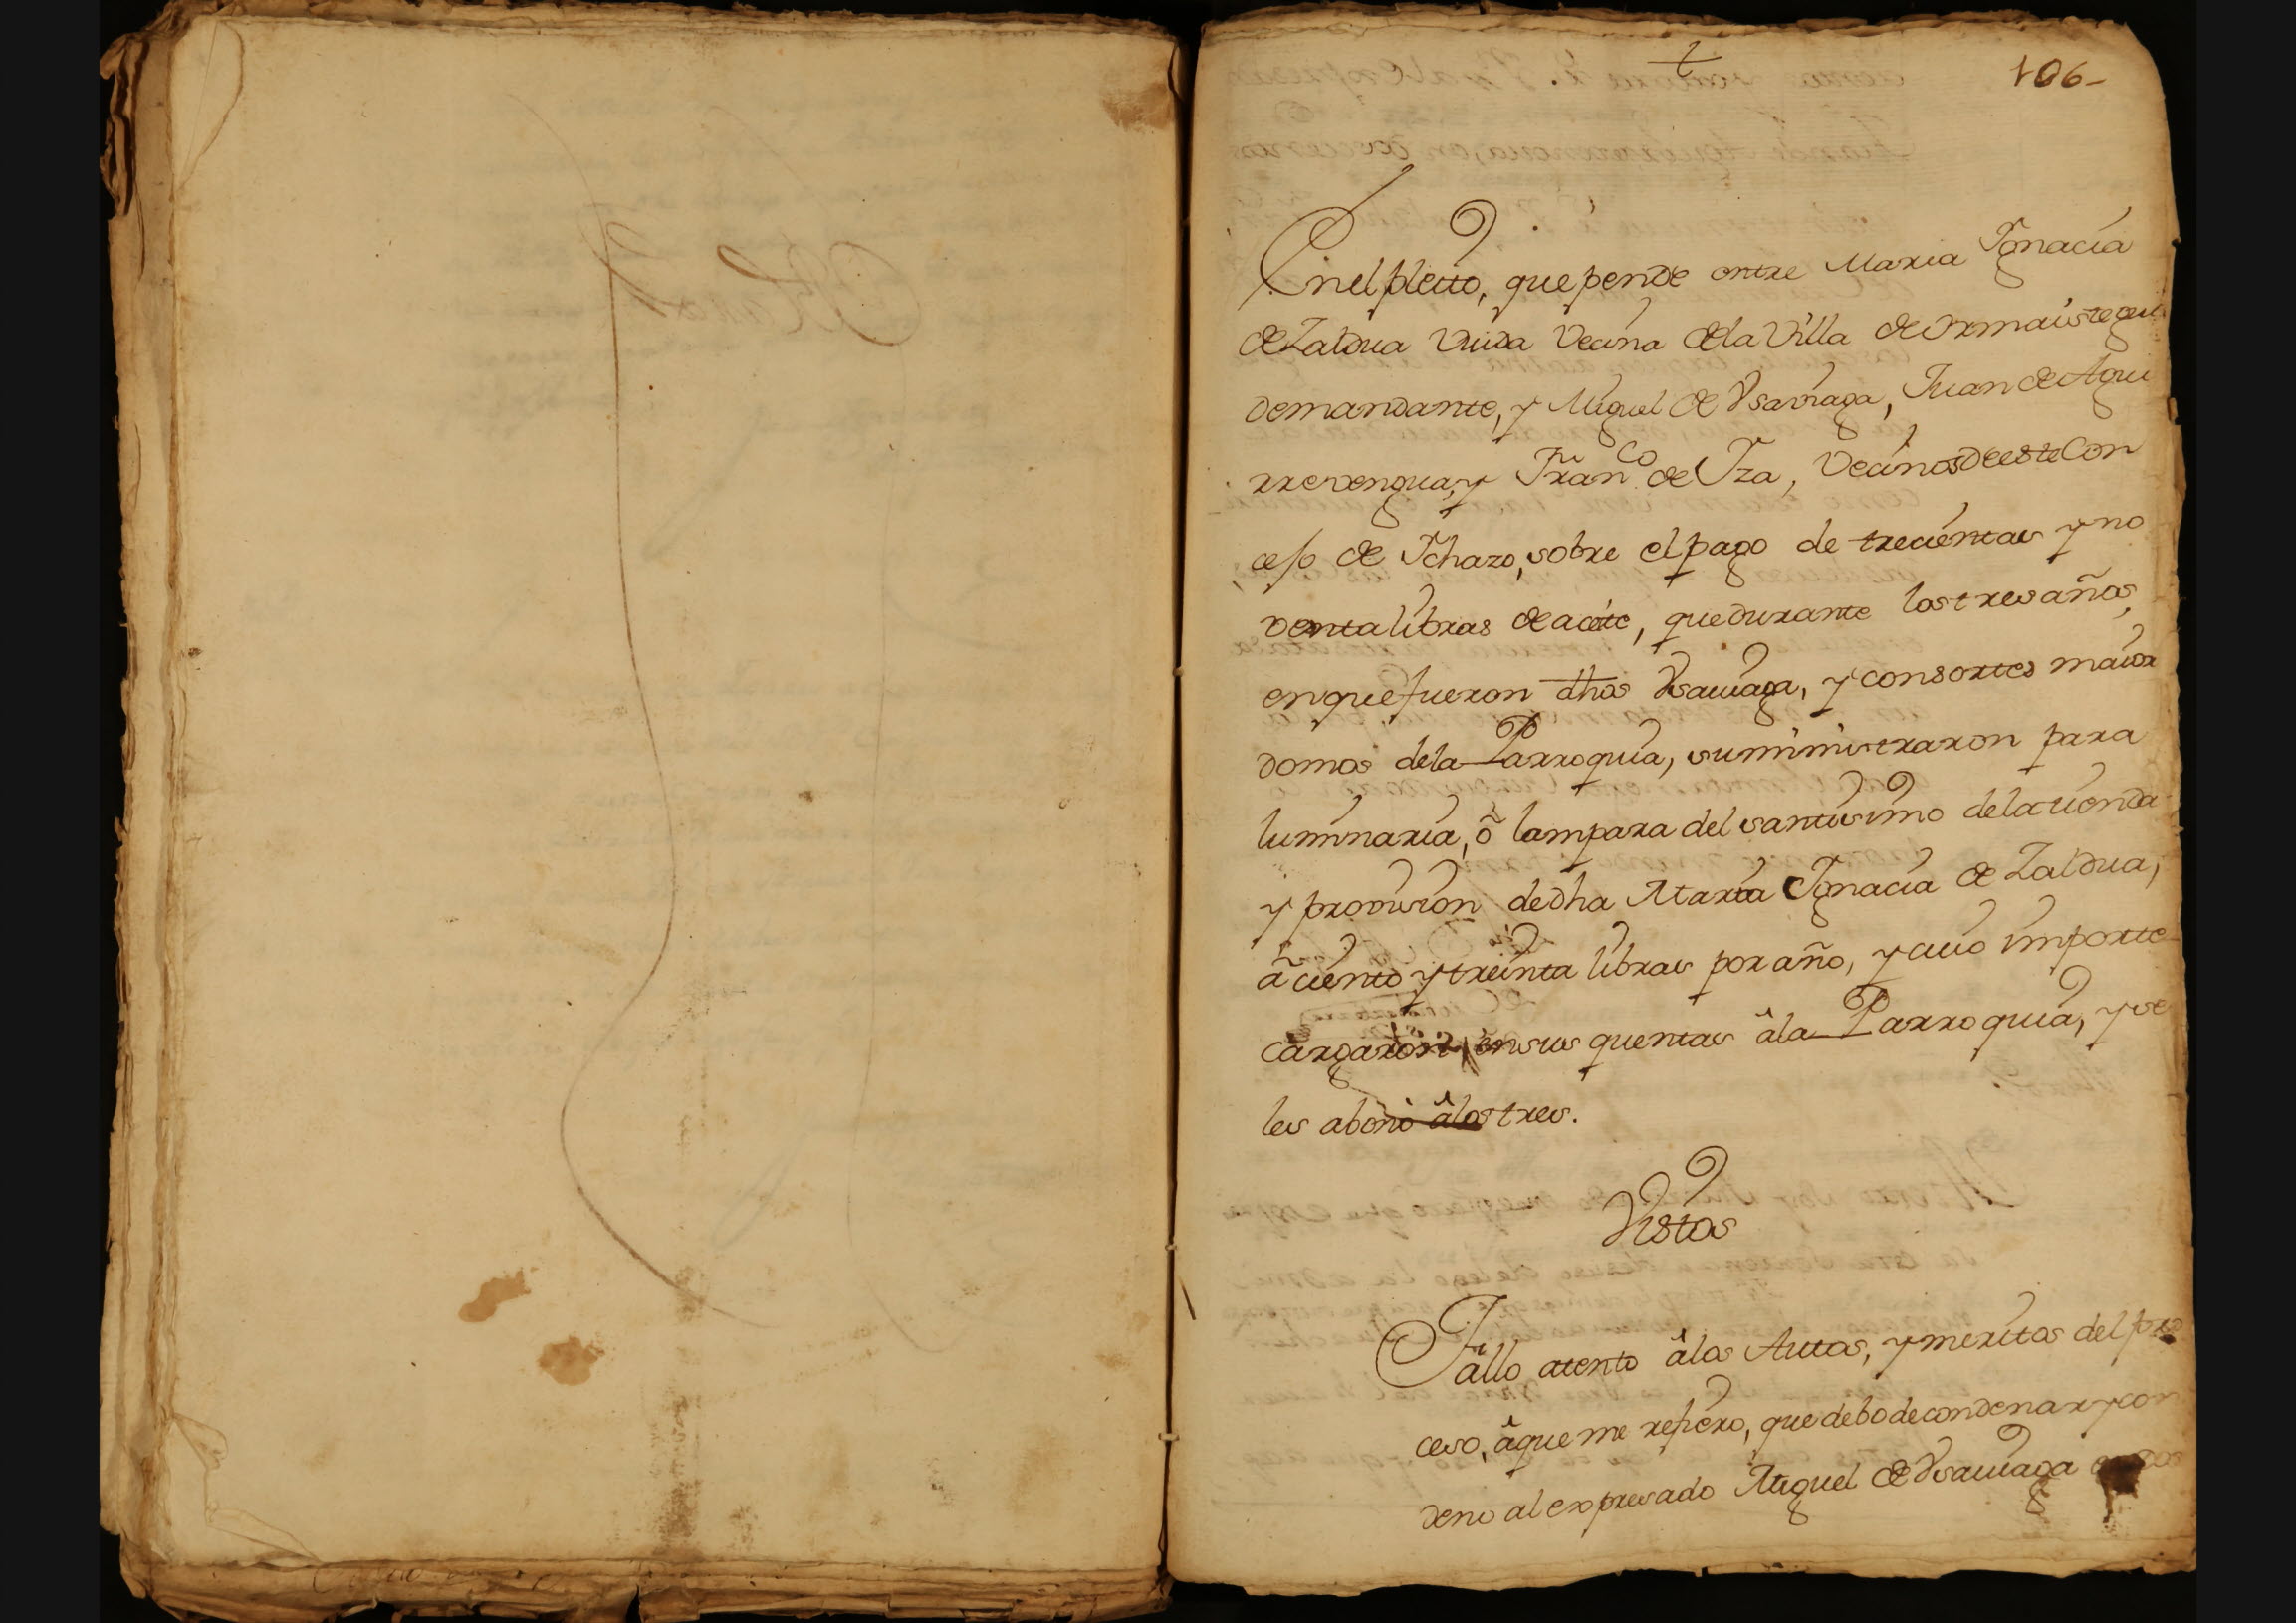 106-
En el pleito, que pende entre Maria Ygnacia
de Zaldua Viuda Vecina de la Villa de Ormaistegui
demandante, y Miguel de Vsarraga, Juan de Agui
rrevengua, y Franco de Yza, Vecinos de este Con
cejo de Ichazo, sobre el pago de trecientas y no
venta libras de aceite, que durante los tres años,
en que fueron dhos Vsarraga, y consortes maior
domos de la Parroquia, suministraron para
luminaria, ô lampara del santisimo de la tienda
y provision de dha Maria Ygnacia de Zaldua,
â ciento y treinta libras por año, y cuio importe
cargaron en sus quentas â la Parroquia, y se
les abonò â los tres.
Vistos
Fallo atento â los Autos, y meritos del pro
ceso, â que me refiero, que debo de condenar y con
deno al expresado Miguel de Vsarraga